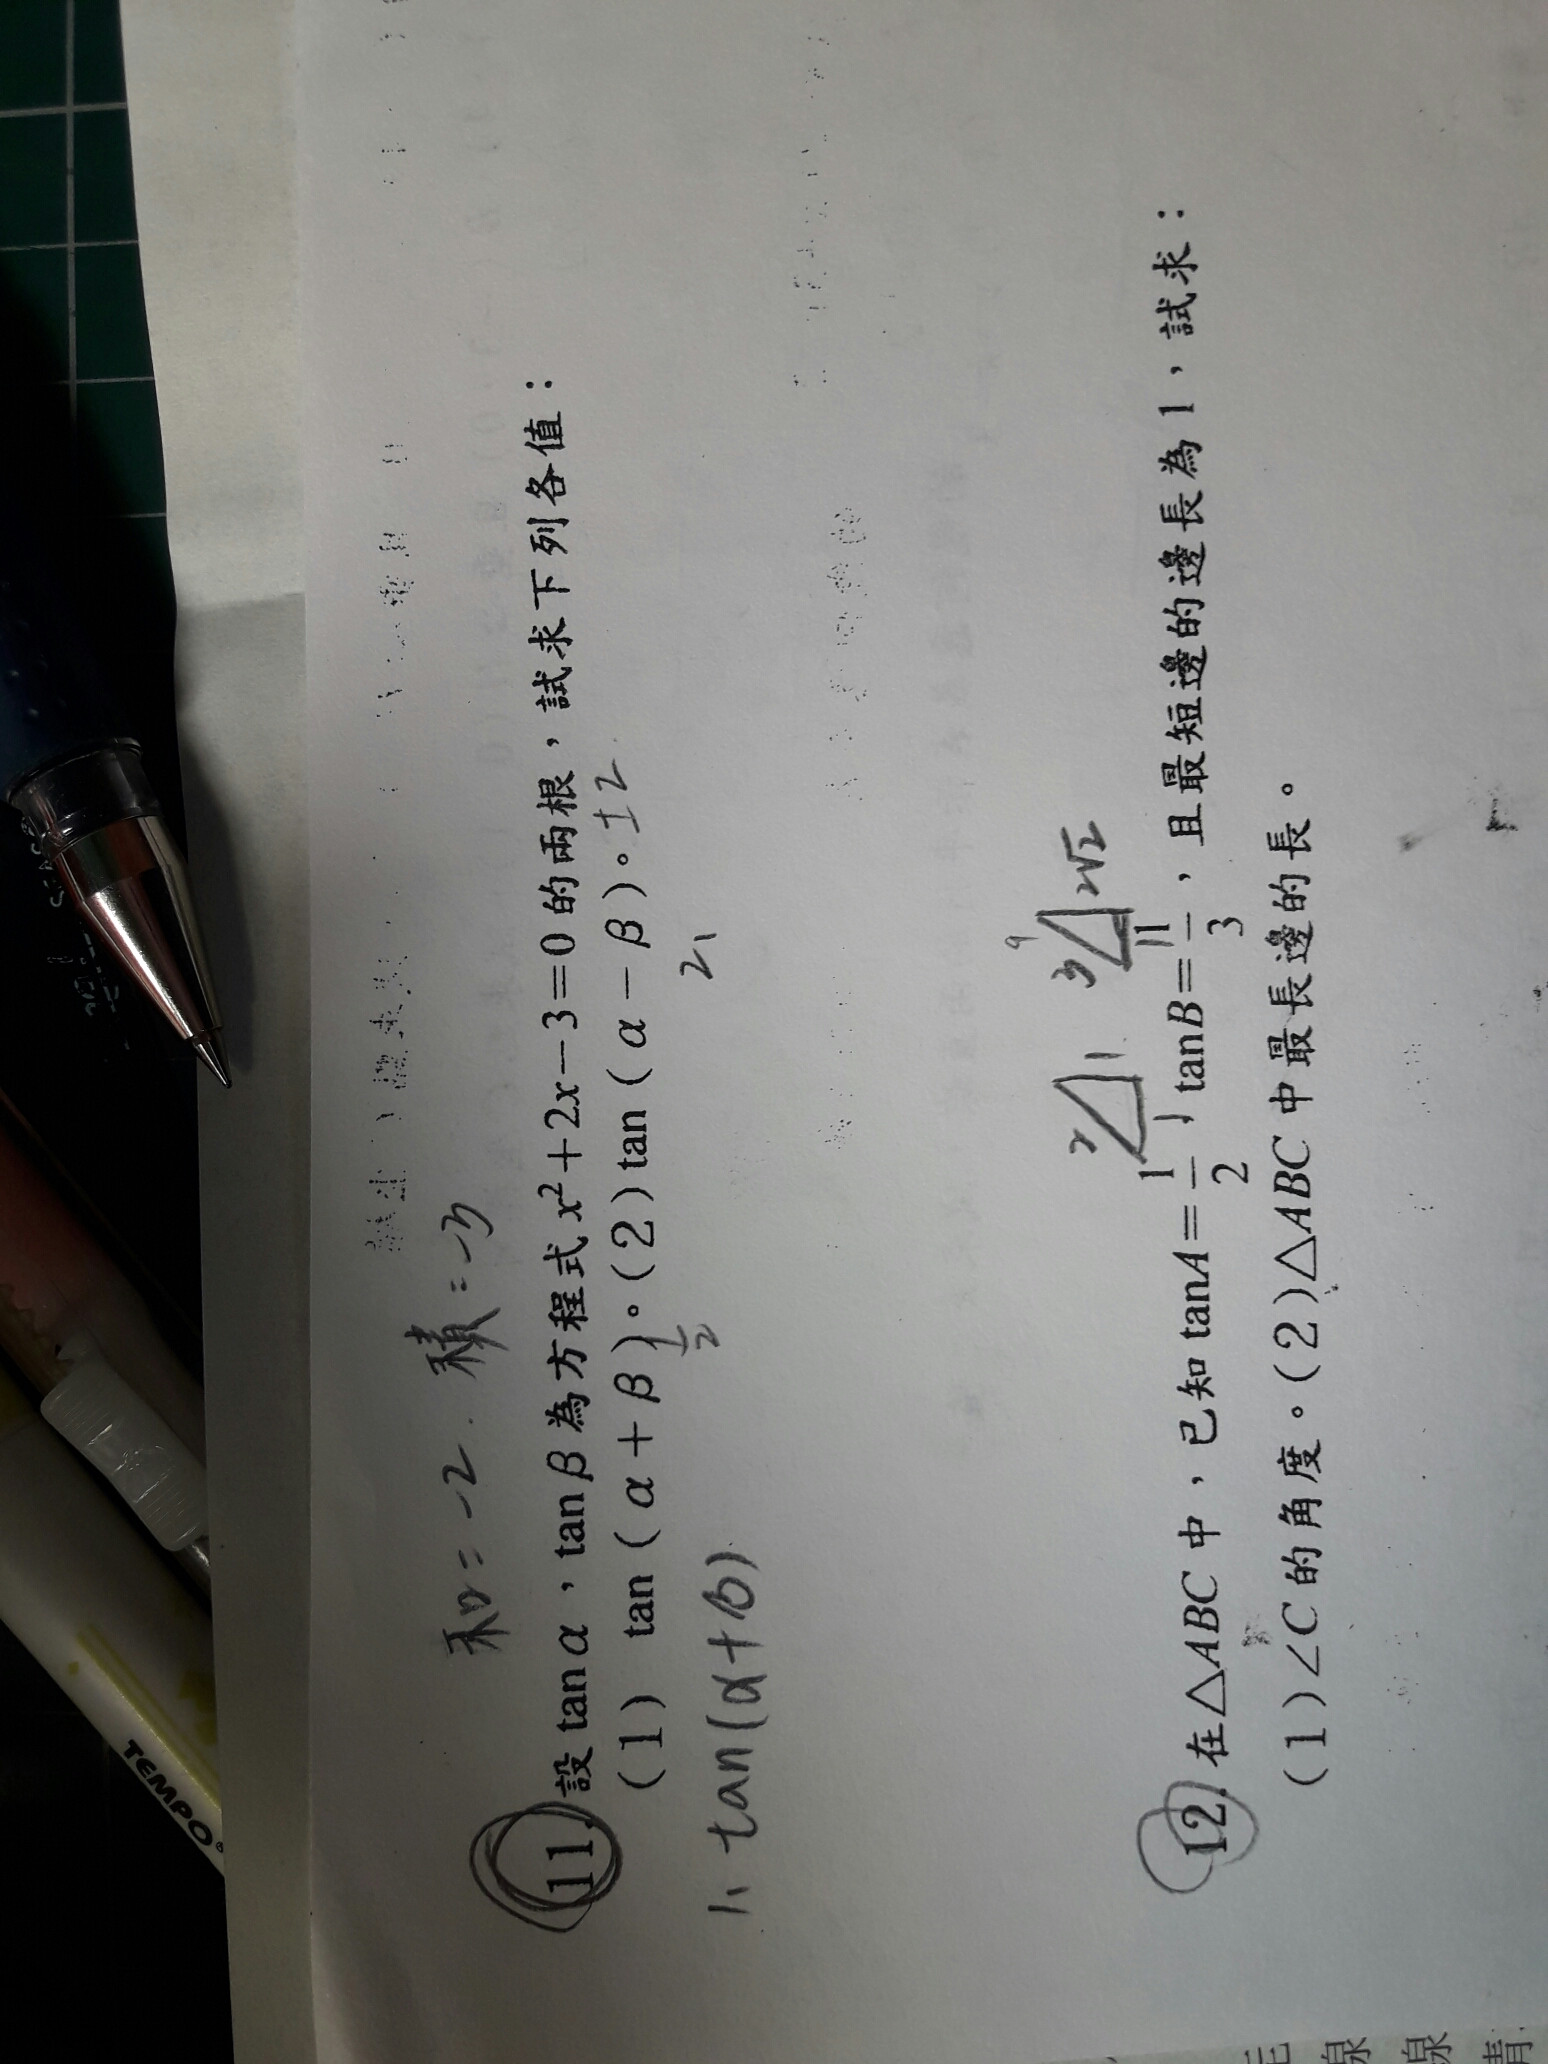 TEMPO
和=-2. 積=-3
11. 設 tanα,tanβ為方程式x²+2x-3=0的兩根,試求下列各值:
(1) tan(α+β)。(2)tan(α-β)。±2
1/2
2、
1、tan(α+β)
2 1
3 1 2√2
12. 在△ABC中,已知tanA=1/2,tanB=1/3,且最短邊的邊長為1,試求:
(1)∠C的角度。(2)△ABC中最長邊的長。